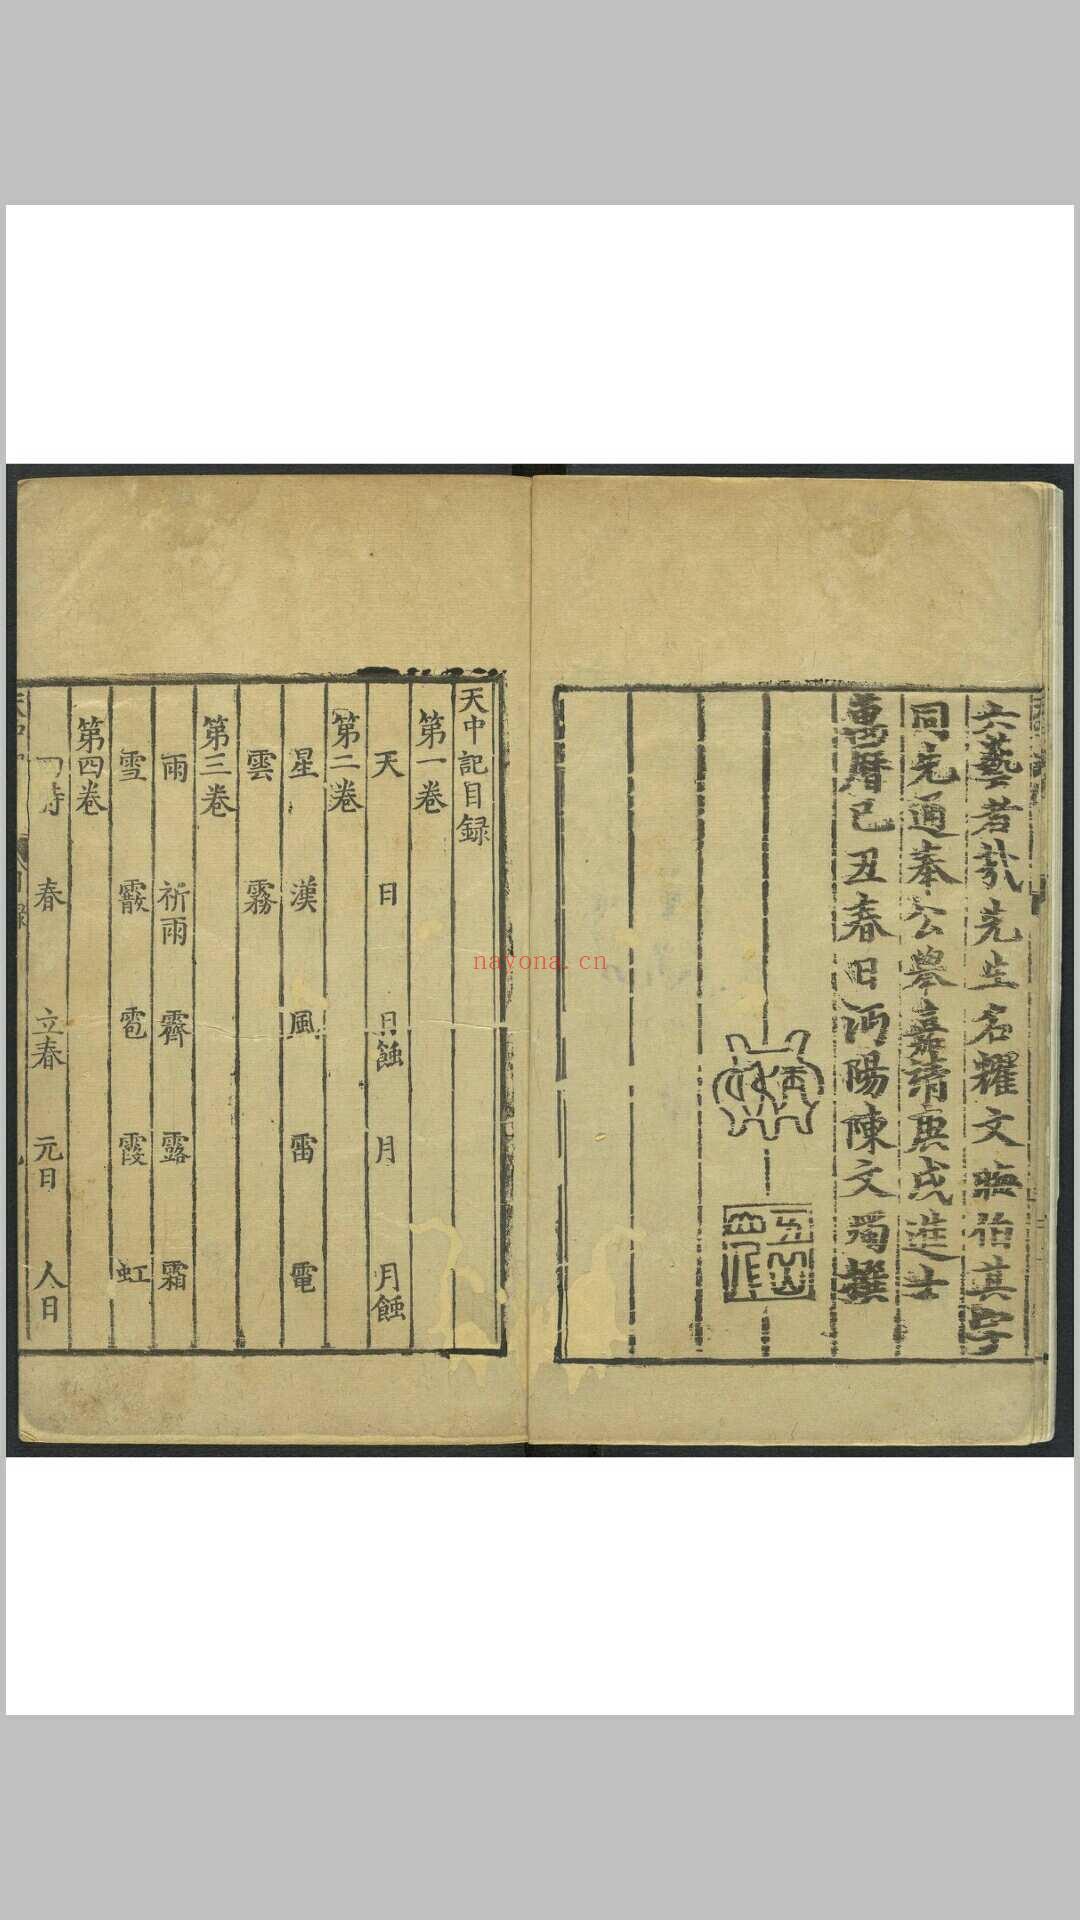 六藝者哉先生名耀文晦伯其字
同先通奉公舉嘉靖庚戌進士
萬曆己丑春日沔陽陳文燭撰
五山
天中記目録
第一卷
天 日 日蝕 月 月蝕
第二卷
星 漢 風 雷 電
雲 霧
第三卷
雨 祈雨 霽 露 霜
雪 霰 雹 霞 虹
第四卷
四時 春 立春 元日 人日
nayona.cn